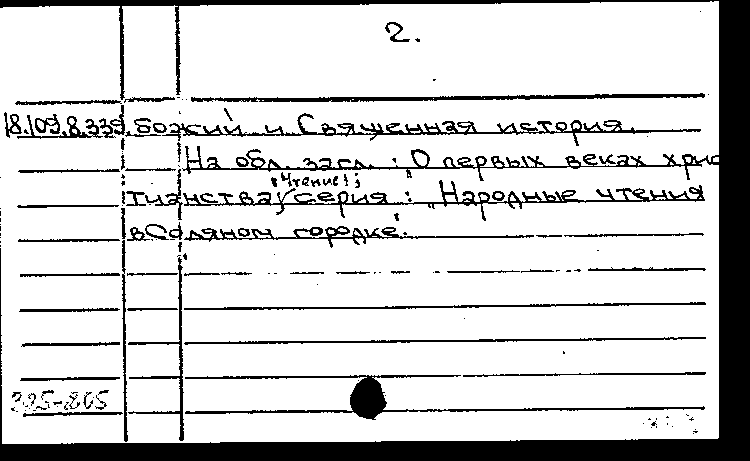 2.
18.109.8.339. Божий и Священная история.
На обл. загл.: „О первых веках хрис
„Чтение1;
тианства“; серия: „Народные чтения
в Соляном городке“.